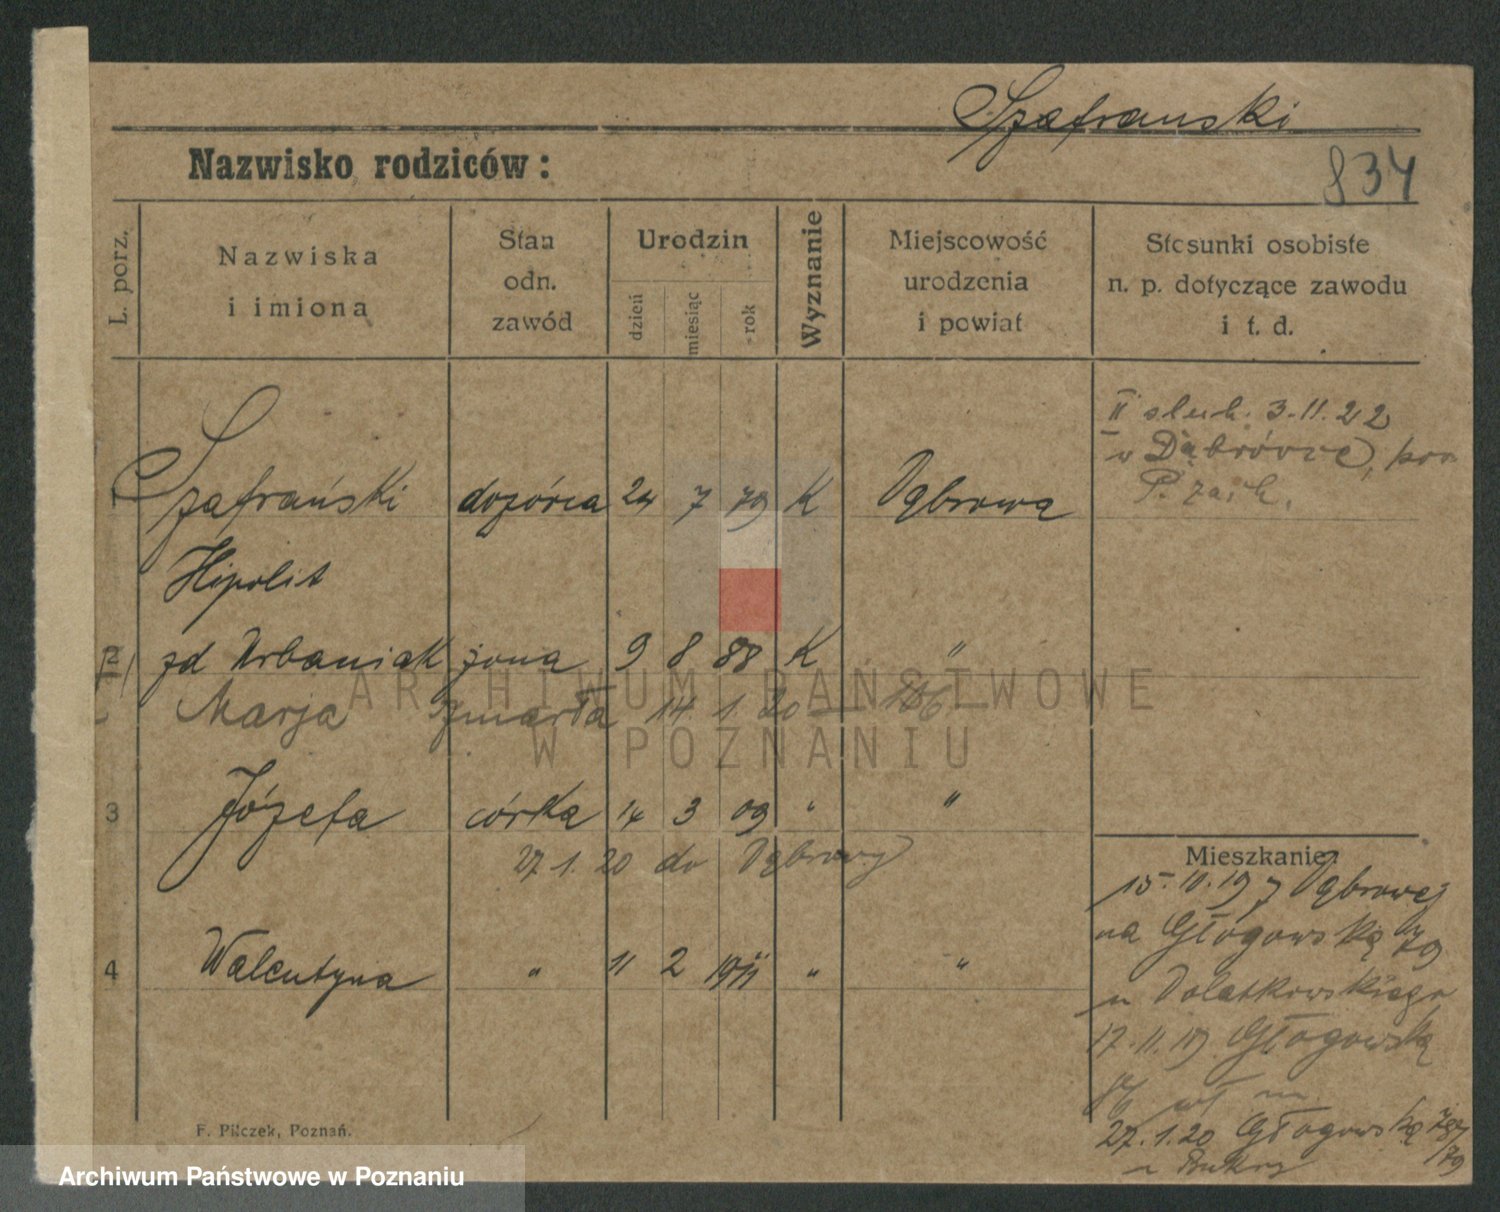 Szafranski
834
Nazwisko rodziców:
L. porz.
Nazwiska
i imiona
Stan
odn.
zawód
Urodzin
dzień
miesiąc
rok
Wyznanie
Miejscowość
urodzenia
i powiat
Stosunki osobiste
n. p. dotyczące zawodu
i t. d.
II slub. 3.11.22
w Dąbrówce, pow
P. zach.
1 Szafrański dozórca 24 7 79 K Dąbrowa
Hipolit
2 zd Urbaniak żona 9 8 88 K "
Marja zmarła 14 1 20
3 Józefa córka 14 3 09 " "
27.1.20 do Dąbrowy
4 Walentyna " 11 2 1911 " "
Mieszkanie:
15.10.19 z Dąbrowej
na Głogowską 79
u Dolatkowskiego
17.11.19 Głogowską
27.1.20 Głogowską
F. Pilczek, Poznań.
ARCHIWUM PAŃSTWOWE
W POZNANIU
Archiwum Państwowe w Poznaniu